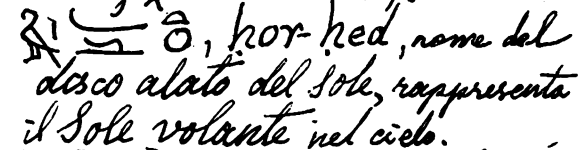 , hor-hed, nome del
disco alato del Sole, rappresenta
il Sole volante nel cielo.